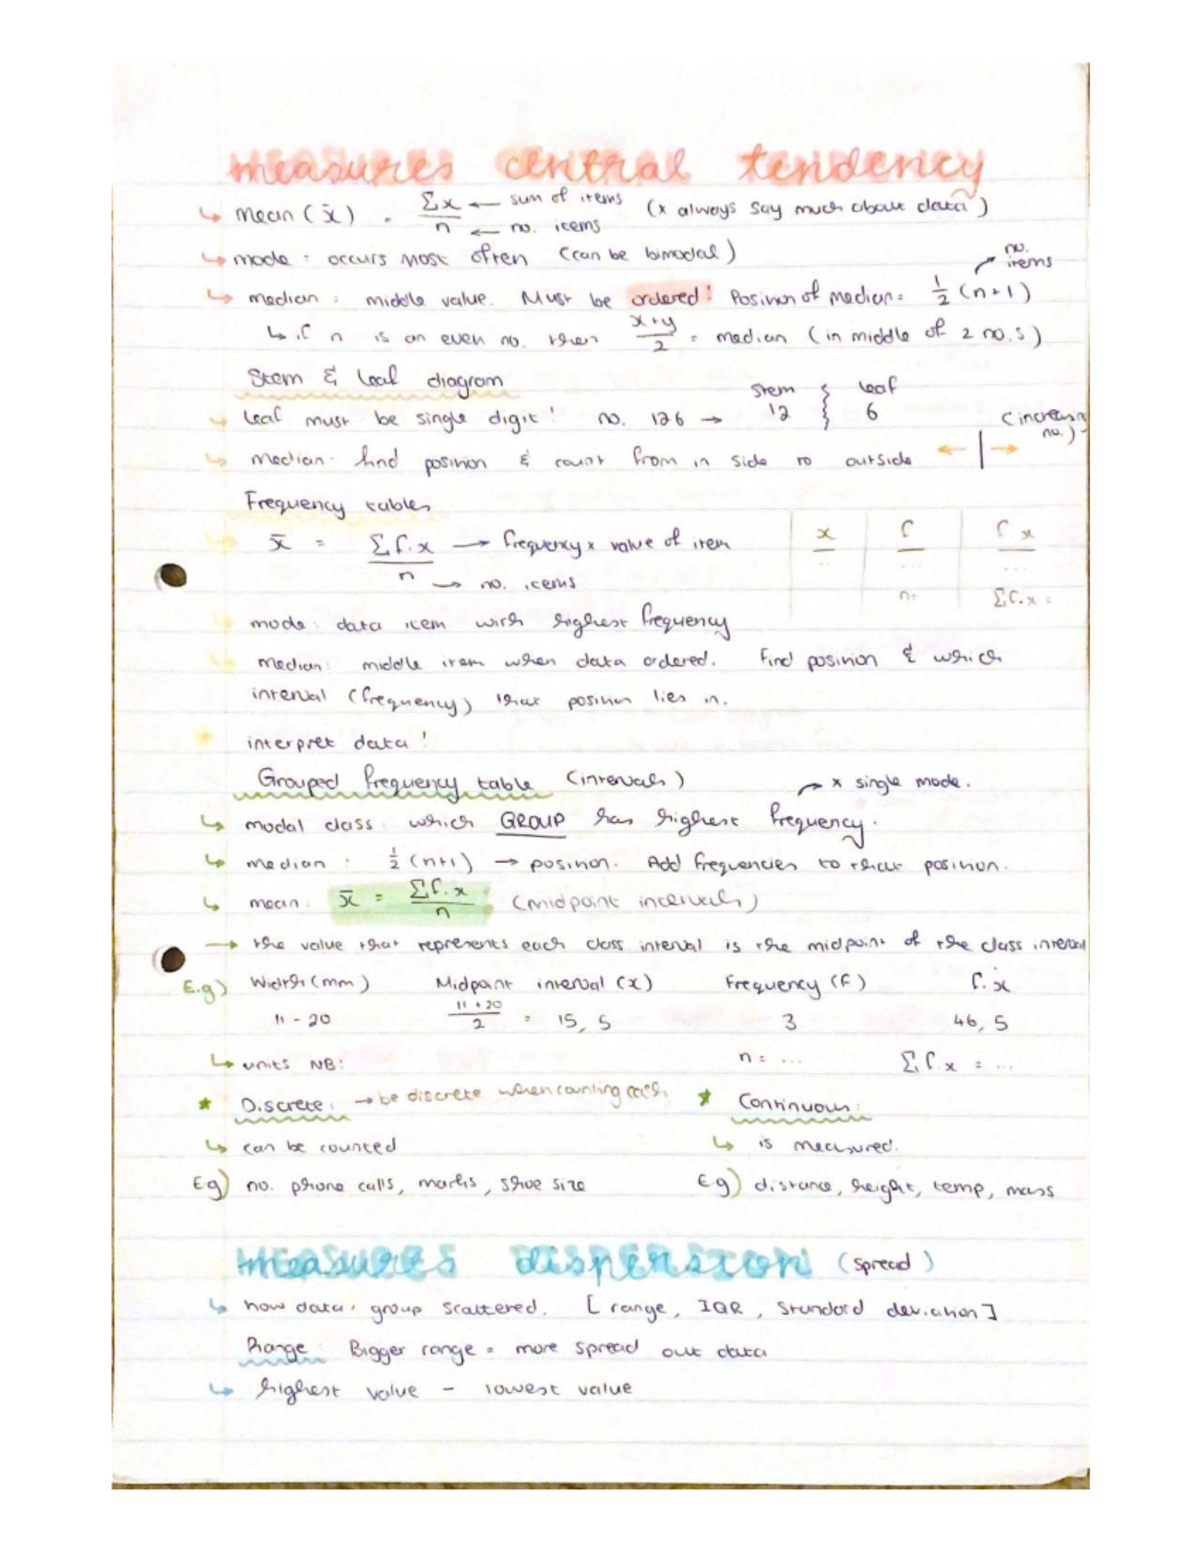 measures central tendency
mean (x̄) = Σx/n ← sum of items ← no. items (x always say much about data)
mode : occurs most often (can be bimodal)
median : middle value. Must be ordered! Position of median = ½ (n+1) → no. items
↳ if n is an even no. then x+y/2 = median (in middle of 2 no.s)
Stem & leaf diagram
leaf must be single digit! no. 126 → stem 12 leaf 6
median: find position & count from in side to outside ← | → (increasing no.)
Frequency tables
x̄ = Σf.x/n → frequency x value of item → no. items
x f f x
... ... ...
n= Σf.x =
mode: data item with highest frequency
median: middle item when data ordered. Find position & which
interval (frequency) that position lies in.
interpret data!
Grouped frequency table (intervals)
modal class: which GROUP has highest frequency. → x single mode.
median : ½ (n+1) → position. Add frequencies to that position.
mean: x̄ = Σf.x/n (midpoint intervals)
→ the value that represents each class interval is the midpoint of the class interval
E.g) Width (mm) Midpoint interval (x) Frequency (f) f.x
11 - 20 11+20/2 = 15,5 3 46,5
↳ units NB: n = ... Σf.x = ...
* Discrete: → be discrete when counting cash * Continuous:
↳ can be counted ↳ is measured.
Eg) no. phone calls, marks, shoe size Eg) distance, height, temp, mass
measures dispersion (spread)
↳ how data, group scattered. [range, IQR, standard deviation]
Range: Bigger range = more spread out data
↳ highest value - lowest value